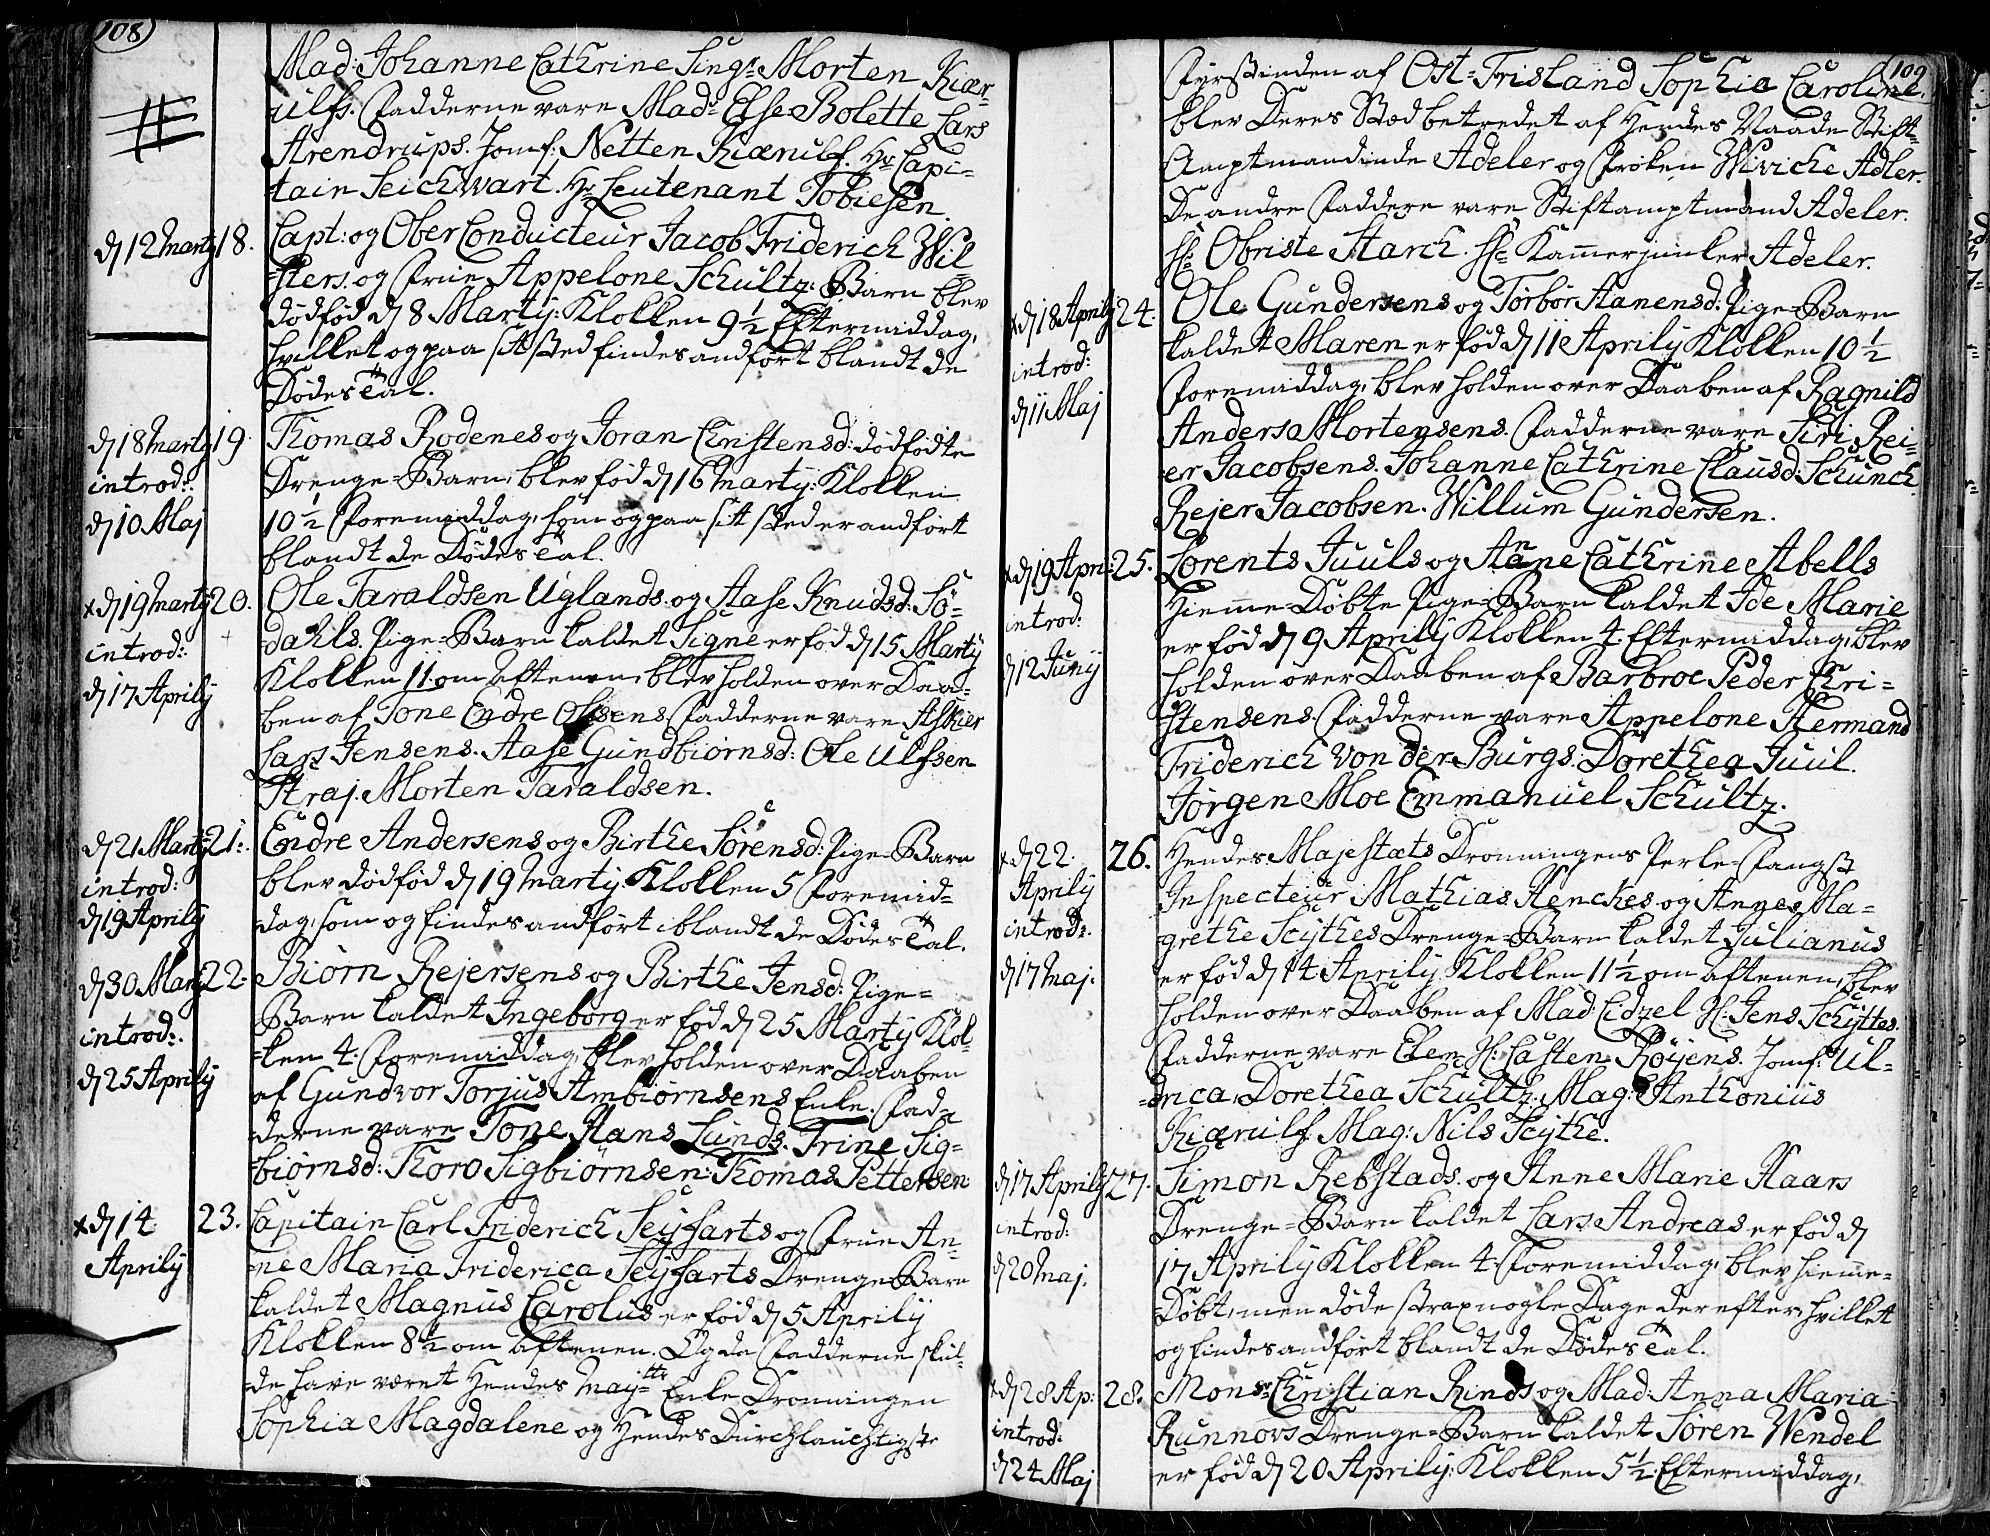 108
Mad: Johanne Cathrine Sing: Morten Kiær-
ulfs. Fadderne vare Mad: Else Bolette Lars
Arendrups. Jomf: Netten Kiærulf. Hr Capi-
tain Seichwart. Hr Leutenant Tobiesen.
d 12 Martÿ 18. Capt: og Ober Conducteur Jacob Friderich Wil-
sters. og Frue Appelone Schultz: Barn blev
dödföd d 8 Martÿ: Klokken 9½ Eftermiddag,
hvilket og paa sit sted findes anfört blandt de
Dödes Tal.
d 18 Martÿ 19. Thomas Rodenes og Joran Christensd: dödfödte
introd: Drenge-Barn, blev föd d 16 Martÿ: Klokken
d 10 Maj 10½ Foremiddag, som og paa sit sted er anfört
blandt de Dödes Tal.
x d 19 Martÿ 20. Ole Taraldsen Uglands. og Aase Knudsd: Sö-
introd: dahls. Pige-Barn kaldet Signe er föd d 15 Martÿ
d 17 Aprilÿ Klokken 11 om Aftenen, blev holden over Daa-
ben af Tone Endre Olsens Fadderne vare Askier
Lars Jensens. Aase Gundbiörnsd: Ole Ulfsen
Straj. Morten Taraldsen.
d 21 Martÿ 21: Endre Andersens og Birthe Sörensd: Pige-Barn
introd: blev dödföd d 19 Martÿ. Klokken 5 Foremid-
d 19 Aprilÿ dag, som og findes anfört iblandt de Dödes Tal.
d 30 Martÿ 22: Biörn Rejersens og Birthe Jensd: Pige-
introd: Barn kaldet Ingeborg er föd d 25 Martÿ Klok-
d 25 Aprilÿ ken 4. Foremiddag, blev holden over Daaben
af Gundvor Torjus Ambiörnsens Enke. Fad-
derne vare Tone Hans Lunds. Trine Sig-
biörnsd: Thoro Sigbiörnsen: Thomas Pettersen
x d 14 Aprilÿ 23. Capitain Carl Friderich Seÿfarts og Frue An-
ne Maria Friderica Seÿfarts Drenge-Barn
kaldet Magnus Carolus er föd d 5 Aprilÿ
Klokken 8½ om Aftenen. Og da Fadderne skul-
de have været Hendes Maÿtts Enke Dronningen
Sophia Magdalene og Hendes Durchlauchtigste
109
Fyrstinden af Ost-Frisland Sophia Caroline.
blev Deres Sted betredet af Hendes Naade Stift-
Amptmandinde Adeler og Fröken Wiviche Adler.
De andre Faddere vare Stiftamptmand Adeler.
Hr Obriste Starch. Hr Kammerjunker Adeler.
x d 18 Aprilÿ 24. Ole Gundersens og Torbör Aanensd: Pige-Barn
introd: kaldet Maren er föd d 11 Aprilÿ Klokken 10½
d 11 Maj Foremiddag, blev holden over Daaben af Ragnild
Anders Mortensens. Fadderne vare Siri Rei-
er Jacobsens. Johanne Cathrine Clausd: Schunch.
Rejer Jacobsen. Willum Gundersen.
x d 19 April 25. Lorents Juuls og Anne Cathrine Abells
introd: Hiemme-Döbte Pige-Barn kaldet Ide Marie
d 12 Junÿ er föd d 9 Aprilÿ Klokken 4. Eftermiddag, blev
holden over Daaben af Barbroe Peder Chri-
stensens. Fadderne vare Appelone Hermand
Friderich von der Burgs. Dorethea Juul.
Jörgen Moe Emmanuel Schultz.
x d 22. Aprilÿ 26. Hendes Majestæts Dronningens Perle-Fangst
Inspecteur Mathias Henckes og Anne Ma-
introd: grethe Scÿthes Drenge-Barn kaldet Julianus
d 17 Maj. er föd d 14 Aprilÿ Klokken 11½ om aftenen, blev
holden over Daaben af Mad: Cidzel Hr: Jens Schÿttes.
Fadderne vare Hr: Casten Röÿens. Jomf: Ul-
drica Dorethea Schultz. Mag: Anthonius
Kiærulf. Mag: Nils Scÿthe.
d 17 Aprilÿ 27. Simon Rebstads. og Anne Marie Haars
introd: Drenge-Barn kaldet Lars Andreas er föd d
d 20 Maj. 17 Aprilÿ Klokken 4. Foremiddag, blev hieme-
Döbt, men döde strax nogle Dage derefter, hvilket
og findes anfört blandt de Dödes Tal.
x d 28 Ap: 28. Monsr Christian Rinds og Mad: Anna Maria
introd: Runnovs Drenge-Barn kaldet Sören Wendel
d 24 Maj er föd d 20 Aprilÿ: Klokken 5½ Eftermiddag,